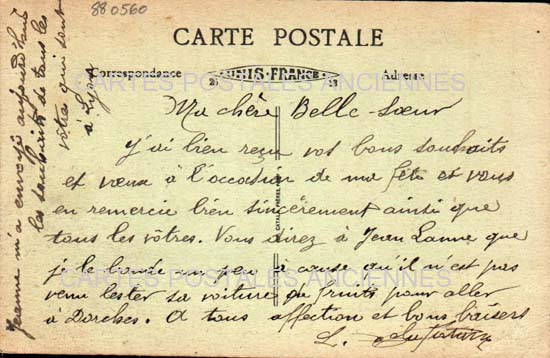 880560
CARTE POSTALE
Correspondance
UNIS-FRANCE
Adresse
CARTES POSTALES ANCIENNES
Ma chère Belle-Sœur
J'ai bien reçu vos bons souhaits
et vœux à l'occasion de ma fête et vous
en remercie bien sincèrement ainsi que
tous les vôtres. Vous direz à Jean Lanne que
je le boude un peu à cause qu'il n'est pas
venu lester sa voiture de fruits pour aller
à Dorches. A tous affection et bons baisers
L.
CARTES POSTALES ANCIENNES
Jeanne m'a envoyé aujourd'hui
les souhaits de tous les
vôtres qui sont
à Lyon